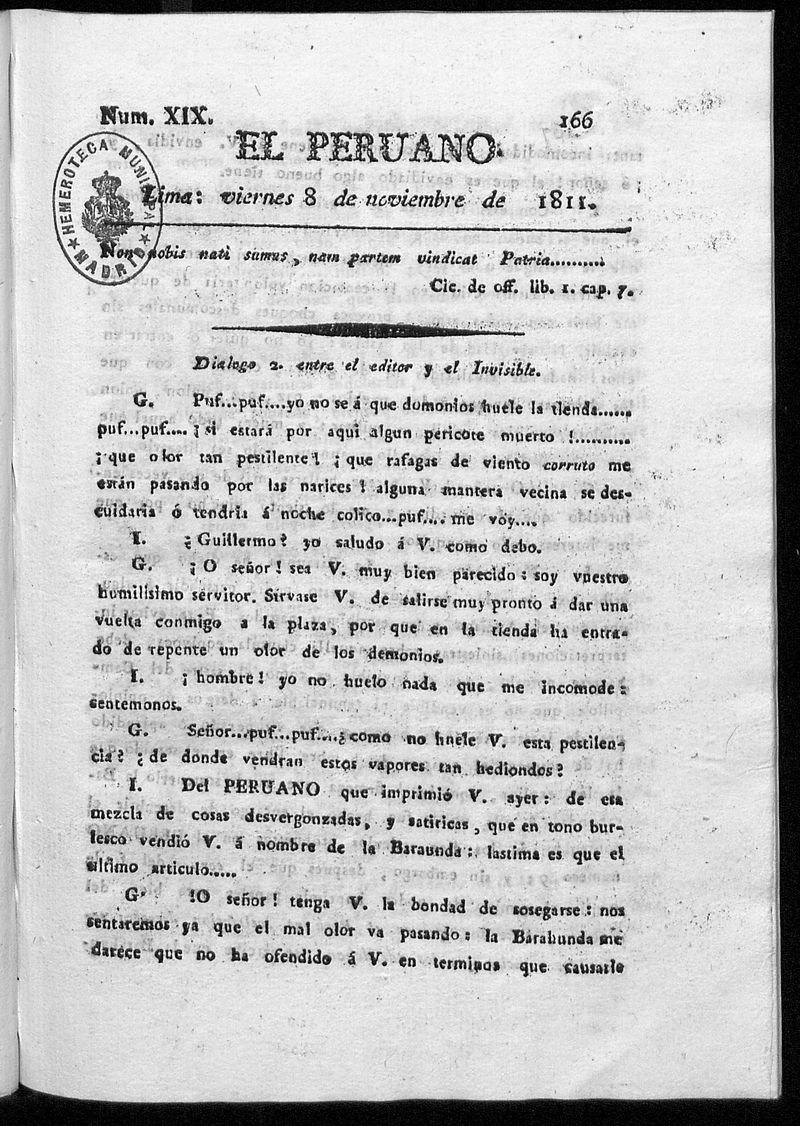 Num. XIX. 166
EL PERUANO.
HEMEROTECA MUNICIPAL
MADRID
Lima: viernes 8 de noviembre de 1811.
Non nobis nati sumus, nam partem vindicat Patria..........
Cic. de off. lib. 1. cap. 7.
Dialogo 2. entre el editor y el Invisible.
G. Puf...puf....yo no se á que domonios huele la tienda......
puf...puf.... ¡si estará por aqui algun pericote muerto !..........
¡que olor tan pestilente! ¡que rafagas de viento corruto me
están pasando por las narices! alguna mantera vecina se des-
cuidaria ó tendria á noche colico...puf.... me voy....
I. ¿Guillermo? yo saludo á V. como debo.
G. ¡O señor! sea V. muy bien parecido: soy vuestro
humilísimo servitor. Sírvase V. de salirse muy pronto á dar una
vuelta conmigo a la plaza, por que en la tienda ha entra-
do de repente un olor de los demonios.
I. ¡hombre! yo no huelo nada que me incomode:
sentemonos.
G. Señor...puf...puf....¿como no huele V. esta pestilen-
cia? ¿de donde vendran estos vapores tan hediondos?
I. Del PERUANO que imprimió V. ayer: de esa
mezcla de cosas desvergonzadas, y satiricas, que en tono bur-
lesco vendió V. á nombre de la Baraunda: lastima es que el
último articulo.....
G. !O señor! tenga V. la bondad de sosegarse: nos
sentaremos ya que el mal olor va pasando: la Barahunda me
parece que no ha ofendido á V. en terminos que causarle